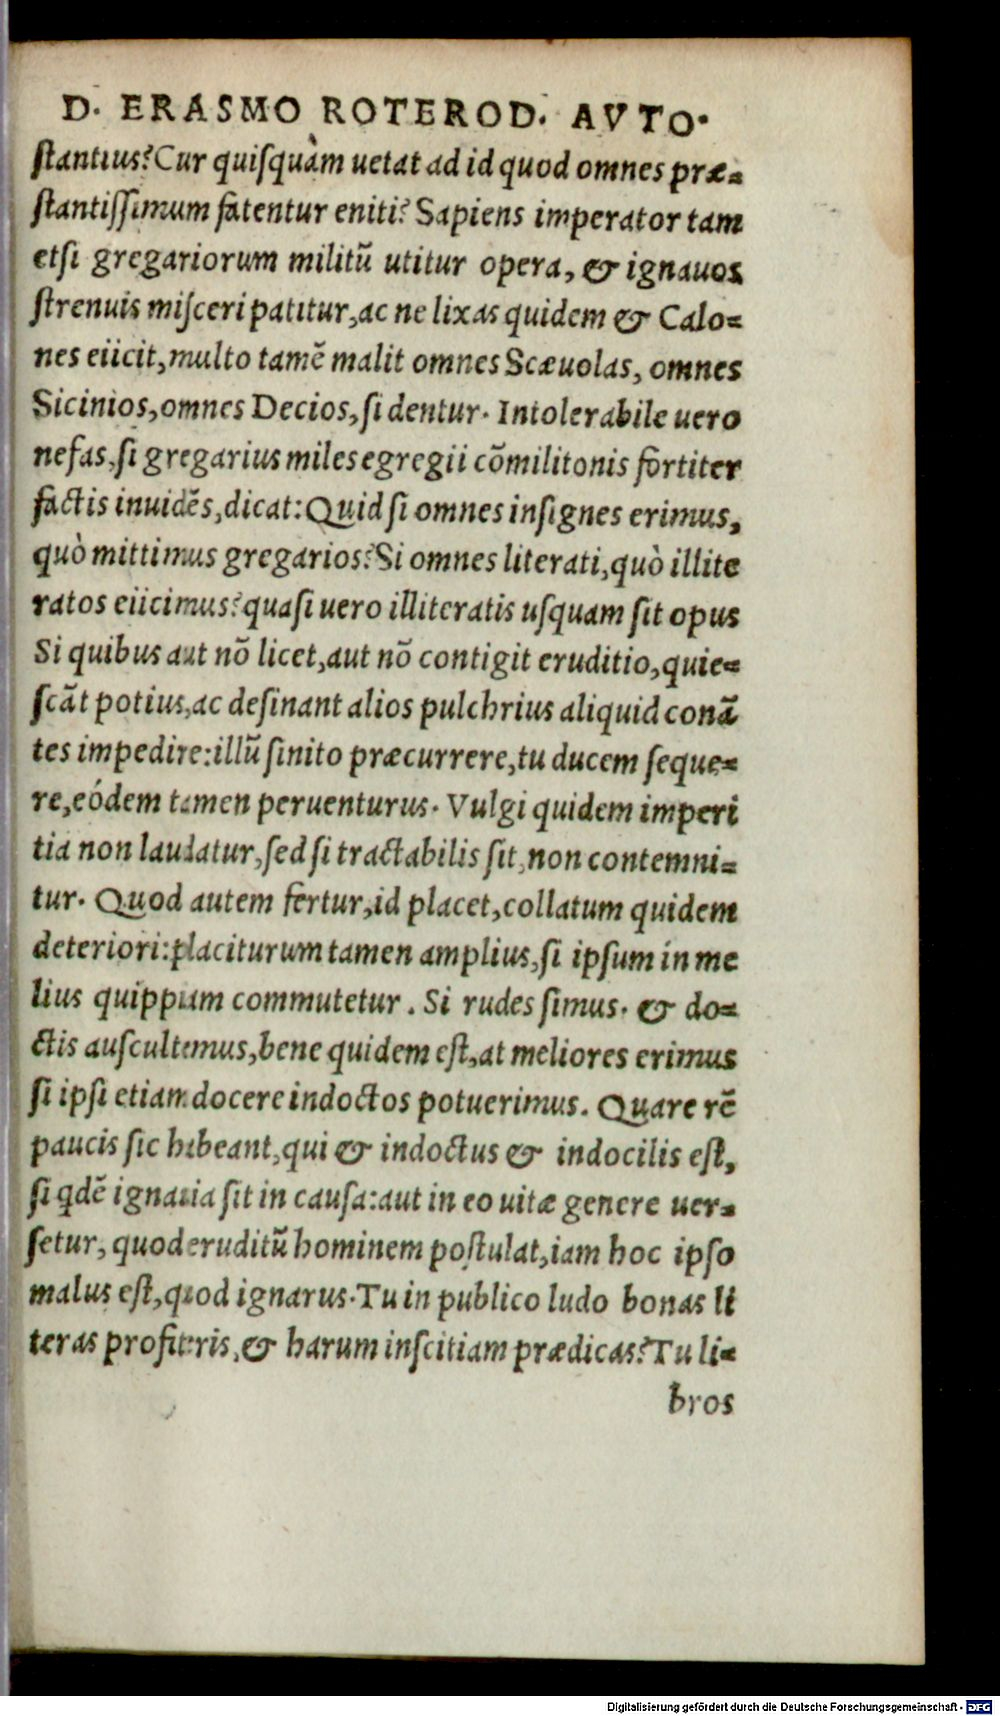 D. ERASMO ROTEROD. AVTO.
ſtantius? Cur quiſquàm uetat ad id quod omnes præ-
ſtantiſſimum fatentur eniti? Sapiens imperator tam
etſi gregariorum militũ utitur opera, & ignauos
ſtrenuis miſceri patitur, ac ne lixas quidem & Calo-
nes eiicit, multo tamẽ malit omnes Scæuolas, omnes
Sicinios, omnes Decios, ſi dentur. Intolerabile uero
nefas, ſi gregarius miles egregii cõmilitonis fortiter
factis inuidẽs, dicat: Quid ſi omnes inſignes erimus,
quò mittimus gregarios? Si omnes literati, quò illite
ratos eiicimus? quaſi uero illiteratis uſquam ſit opus
Si quibus aut nõ licet, aut nõ contigit eruditio, quie-
ſcãt potius, ac deſinant alios pulchrius aliquid conã
tes impedire: illũ ſinito præcurrere, tu ducem ſeque-
re, eódem tamen peruenturus. Vulgi quidem imperi
tia non laudatur, ſed ſi tractabilis ſit, non contemni-
tur. Quod autem fertur, id placet, collatum quidem
deteriori: placiturum tamen amplius, ſi ipſum in me
lius quippiam commutetur. Si rudes ſimus. & do-
ctis auſcultemus, bene quidem eſt, at meliores erimus
ſi ipſi etiam docere indoctos potuerimus. Quare rẽ
paucis ſic habeant, qui & indoctus & indocilis eſt,
ſi qdẽ ignauia ſit in cauſa: aut in eo uitæ genere uer-
ſetur, quod eruditũ hominem poſtulat, iam hoc ipſo
malus eſt, quod ignarus. Tu in publico ludo bonas li
teras profiteris, & harum inſcitiam prædicas? Tu li-
bros
Digitalisierung gefördert durch die Deutsche Forschungsgemeinschaft - DFG